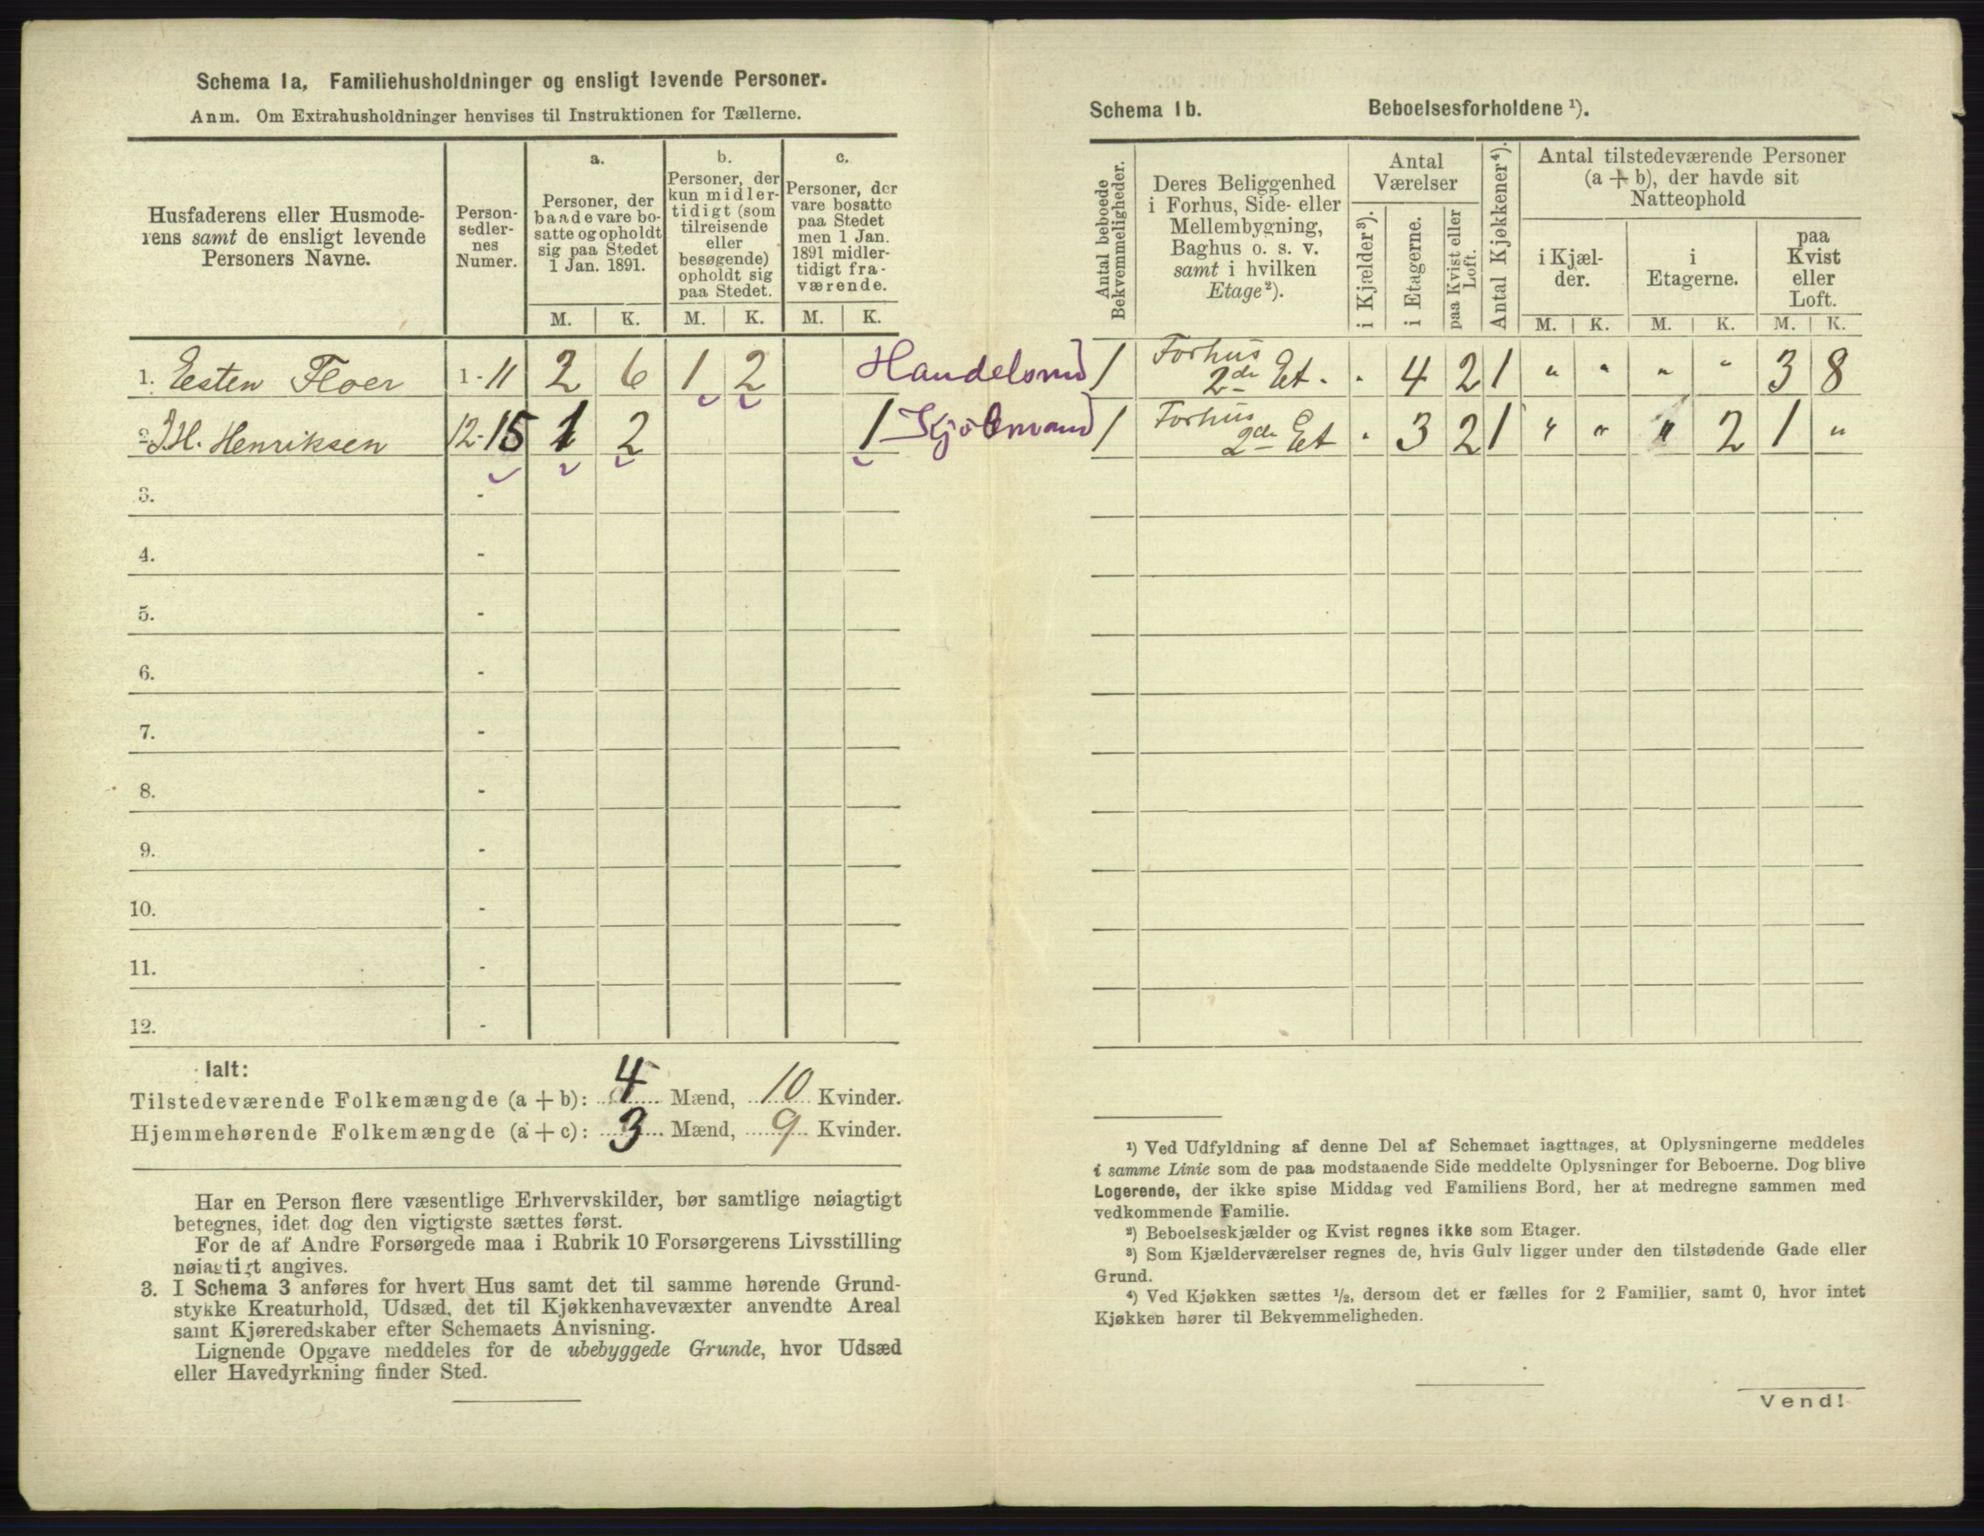 Schema 1a, Familiehusholdninger og ensligt levende Personer.
Anm. Om Extrahusholdninger henvises til Instruktionen for Tællerne.
Husfaderens eller Husmoderens samt de ensligt levende Personers Navne.
Personsedlernes Numer.
a.
Personer, der baade vare bosatte og opholdt sig paa Stedet 1 Jan. 1891.
b.
Personer, der kun midlertidigt (som tilreisende eller besøgende) opholdt sig paa Stedet.
c.
Personer, der vare bosatte paa Stedet men 1 Jan. 1891 midlertidigt fraværende.
M. K. M. K. M. K.
1. Esten Floer 1-11 2 6 1 2 Handelsmd
2. J H. Henriksen 12-15 1 2 1 Kjöbmand
3. -
4. -
5. -
6. -
7. -
8. -
9. -
10. -
11. -
12. -
Ialt:
Tilstedeværende Folkemængde (a + b): 4 Mænd, 10 Kvinder.
Hjemmehørende Folkemængde (a + c): 3 Mænd, 9 Kvinder.
Har en Person flere væsentlige Erhvervskilder, bør samtlige nøiagtigt
betegnes, idet dog den vigtigste sættes først.
For de af Andre Forsørgede maa i Rubrik 10 Forsørgerens Livsstilling
nøiagtigt angives.
3. I Schema 3 anføres for hvert Hus samt det til samme hørende Grund-
stykke Kreaturhold, Udsæd, det til Kjøkkenhavevæxter anvendte Areal
samt Kjøreredskaber efter Schemaets Anvisning.
Lignende Opgave meddeles for de ubebyggede Grunde, hvor Udsæd
eller Havedyrkning finder Sted.
Schema 1b. Beboelsesforholdene ¹).
Antal beboede Bekvemmeligheder.
Deres Beliggenhed i Forhus, Side- eller Mellembygning, Baghus o. s. v. samt i hvilken Etage²).
Antal Værelser
i Kjælder³).
i Etagerne.
paa Kvist eller Loft.
Antal Kjøkkener⁴).
Antal tilstedeværende Personer (a + b), der havde sit Natteophold
i Kjælder.
i Etagerne.
paa Kvist eller Loft.
M. K. M. K. M. K.
1 Forhus 2den Et. " 4 2 1 " " " " 3 8
1 Forhus 2den Et " 3 2 1 " " " 2 1 "
¹) Ved Udfyldning af denne Del af Schemaet iagttages, at Oplysningerne meddeles
i samme Linie som de paa modstaaende Side meddelte Oplysninger for Beboerne. Dog blive
Logerende, der ikke spise Middag ved Familiens Bord, her at medregne sammen med
vedkommende Familie.
²) Beboelseskjælder og Kvist regnes ikke som Etager.
³) Som Kjælderværelser regnes de, hvis Gulv ligger under den tilstødende Gade eller
Grund.
⁴) Ved Kjøkken sættes ½, dersom det er fælles for 2 Familier, samt 0, hvor intet
Kjøkken hører til Bekvemmeligheden.
Vend!